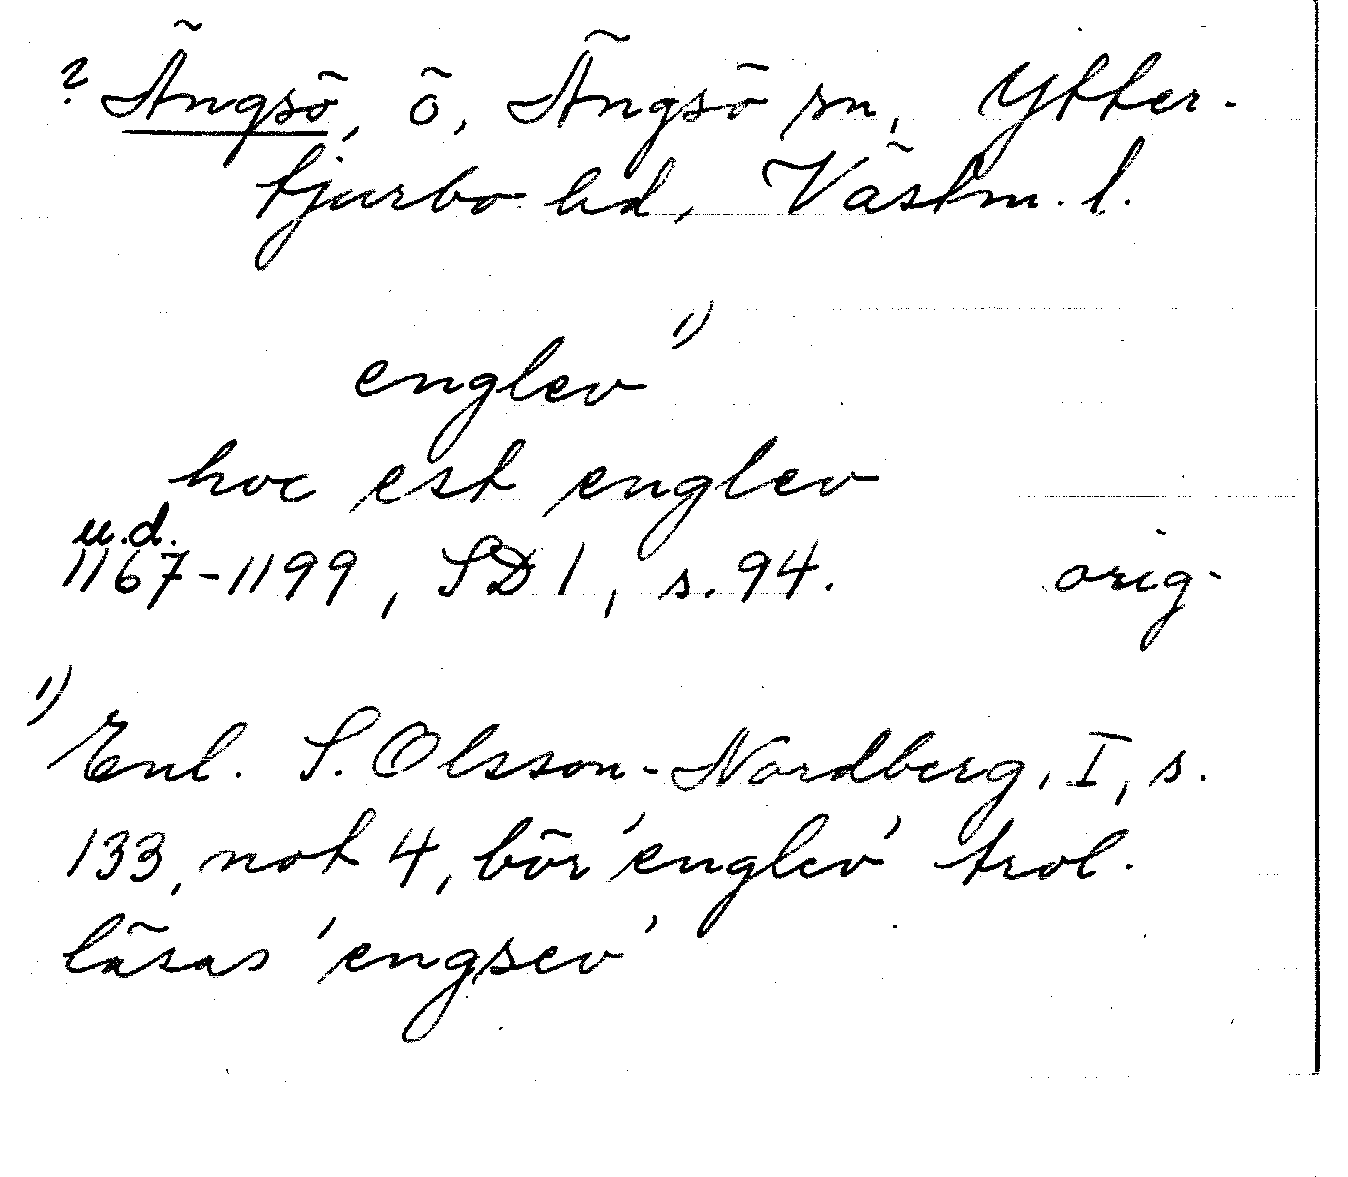 ? Ängsö, ö, Ängsö sn, Ytter-
tjurbo hd, Västm. l.
englev 1)
hoc est englev
u.d.
1167-1199, SD 1, s. 94. orig.
1) Enl. S. Olsson-Nordberg, I, s.
133, not 4, bör 'englev' trol.
läsas 'engsev'